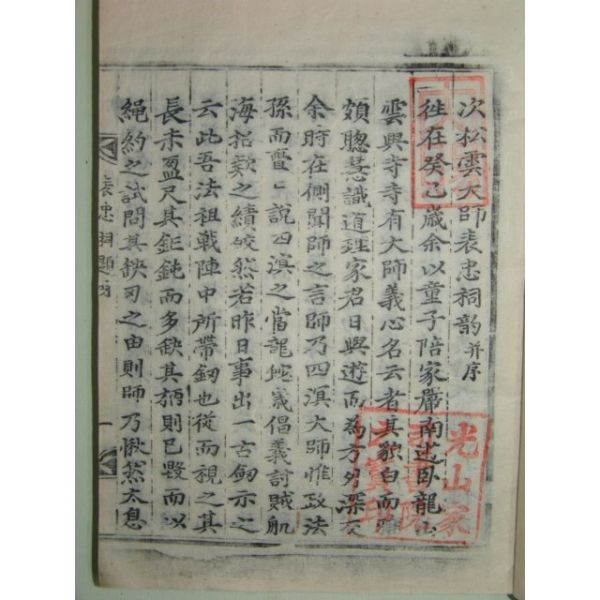 次松雲大師表忠祠韵并序
徃在癸巳歲余以童子陪家嚴南遊臥龍山
雲興寺寺有大師義心名云者其貌白而
頗聰慧識道理家君日與遊而為方外深交
余時在側聞師之言師乃四溟大師惟政法
孫而亹〻說四溟之當龍蛇義倡義討賊航
海招欵之績皎然若昨日事出一古劒示之
云此吾法祖戰陣中所帶釰也從而視之其
長未盈尺其鉅鈍而多缺其柄則已毀而以
繩約之試問其缺刃之由則師乃愀然太息
表忠祠題
一
光山家